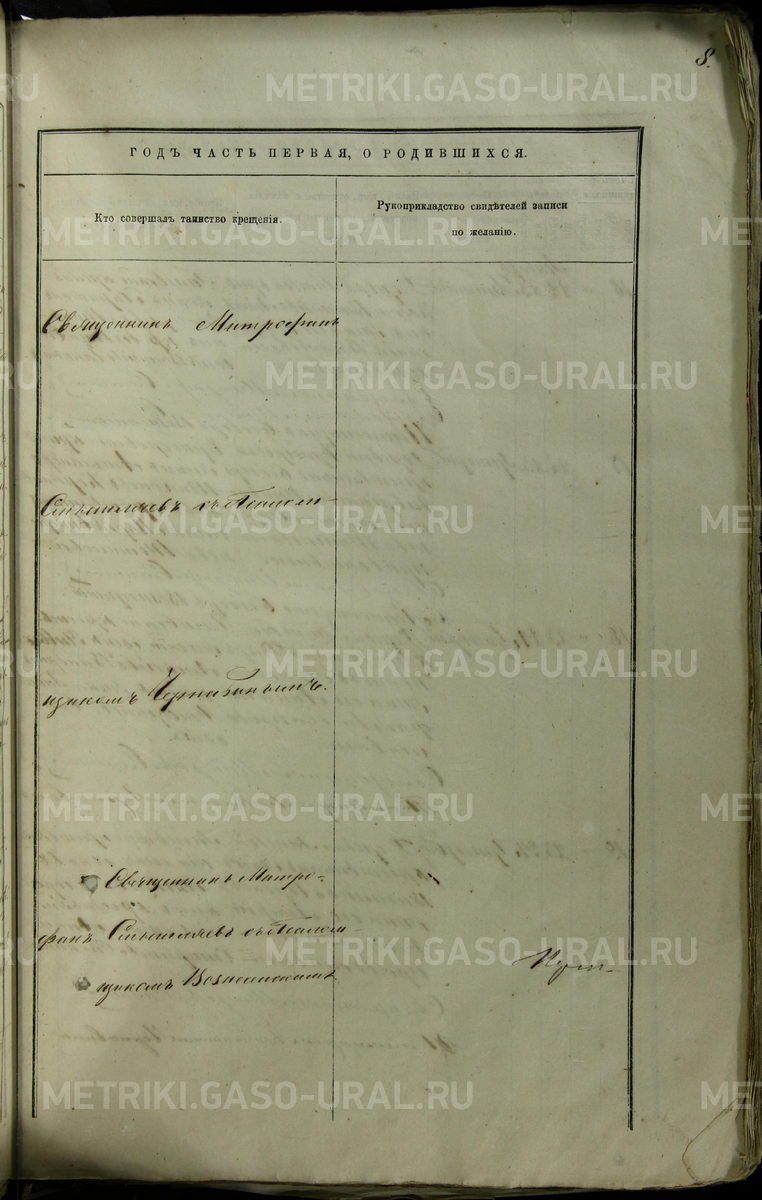 8.
METRIKI.GASO-URAL.RU
ГОДЪ ЧАСТЬ ПЕРВАЯ, О РОДИВШИХСЯ.
Кто совершалъ таинство крещенія.
Рукоприкладство свидѣтелей записи
по желанію.
Священникъ Митрофанъ
Смышляевъ съ Псалом-
щикомъ
Священникъ Митро-
фанъ Смышляевъ съ Псалом-
щикомъ Вознесенскимъ